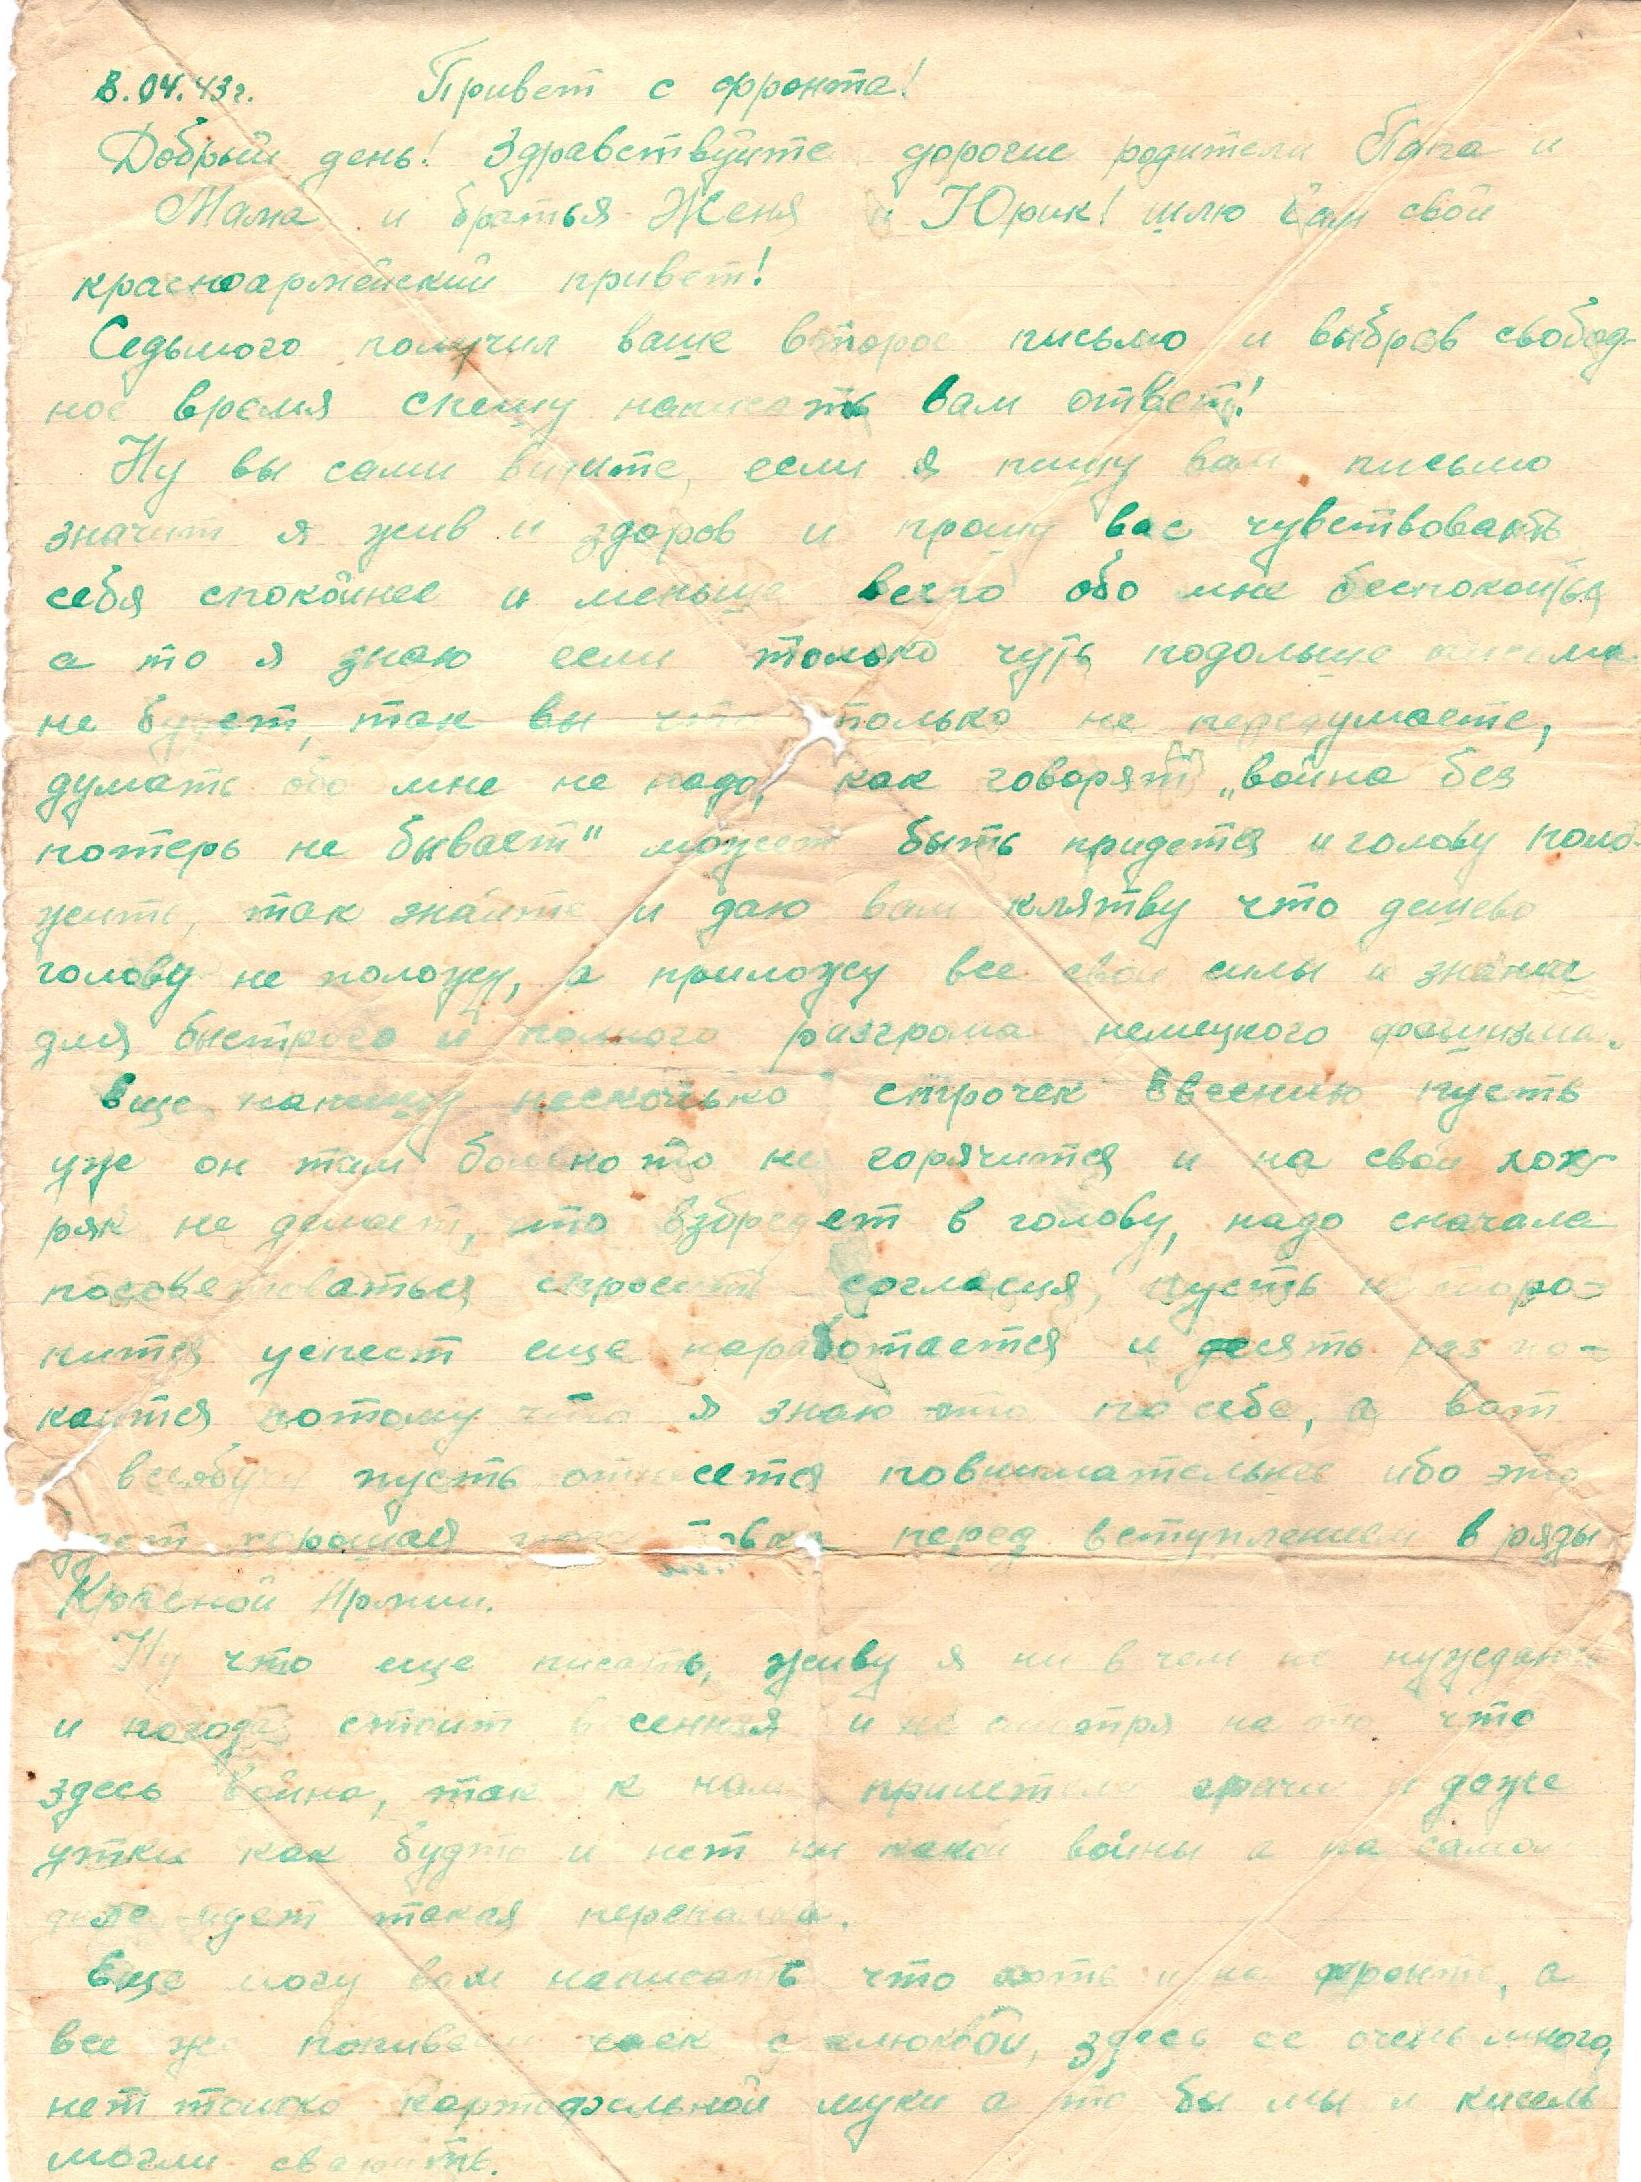 8.04.43г. Привет с фронта!
Добрый день! Здравствуйте дорогие родители Папа и
Мама и братья Женя и Юрик! шлю вам свой
красноармейский привет!
Седьмого получил ваше второе письмо и выбрав свобод-
ное время спешу написать вам ответ!
Ну вы сами видите, если я пишу вам письмо
значит я жив и здоров и прошу вас чувствовать
себя спокойнее и меньше всего обо мне беспокоиться
а то я знаю если только чуть подольше письма
не будет, так вы что только не передумаете,
думать обо мне не надо, как говорят „война без
потерь не бывает" может быть придется и голову поло-
жить, так знайте и даю вам клятву что дешево
голову не положу, а приложу все свои силы и знание
для быстрого и полного разгрома немецкого фашизма.
Еще напишу несколько строчек Евгению пусть
уже он там больно то не горячится и на свой
ряк не делает, что взбредет в голову, надо сначала
посоветоваться спросить согласия, пусть не торо-
пится успеет еще наработается и десять раз по-
каится потому что я знаю это по себе, а вот
всеобучу пусть отнесется повнимательнее ибо это
хорошая перед вступлением в ряды
Красной Армии.
Ну что еще писать, живу я ни в чем не нуждаюсь
и погода стоит весенняя и не смотря на то что
здесь война, так к нам прилетели грачи и даже
утки как будто и нет ни какой войны а на самом
деле идет такая перепалка.
Еще могу вам написать что хоть и на фронте, а
все же попиваем чаек с клюквой, здесь ее очень много,
нет только картофельной муки а то бы мы и кисель
могли сварить.